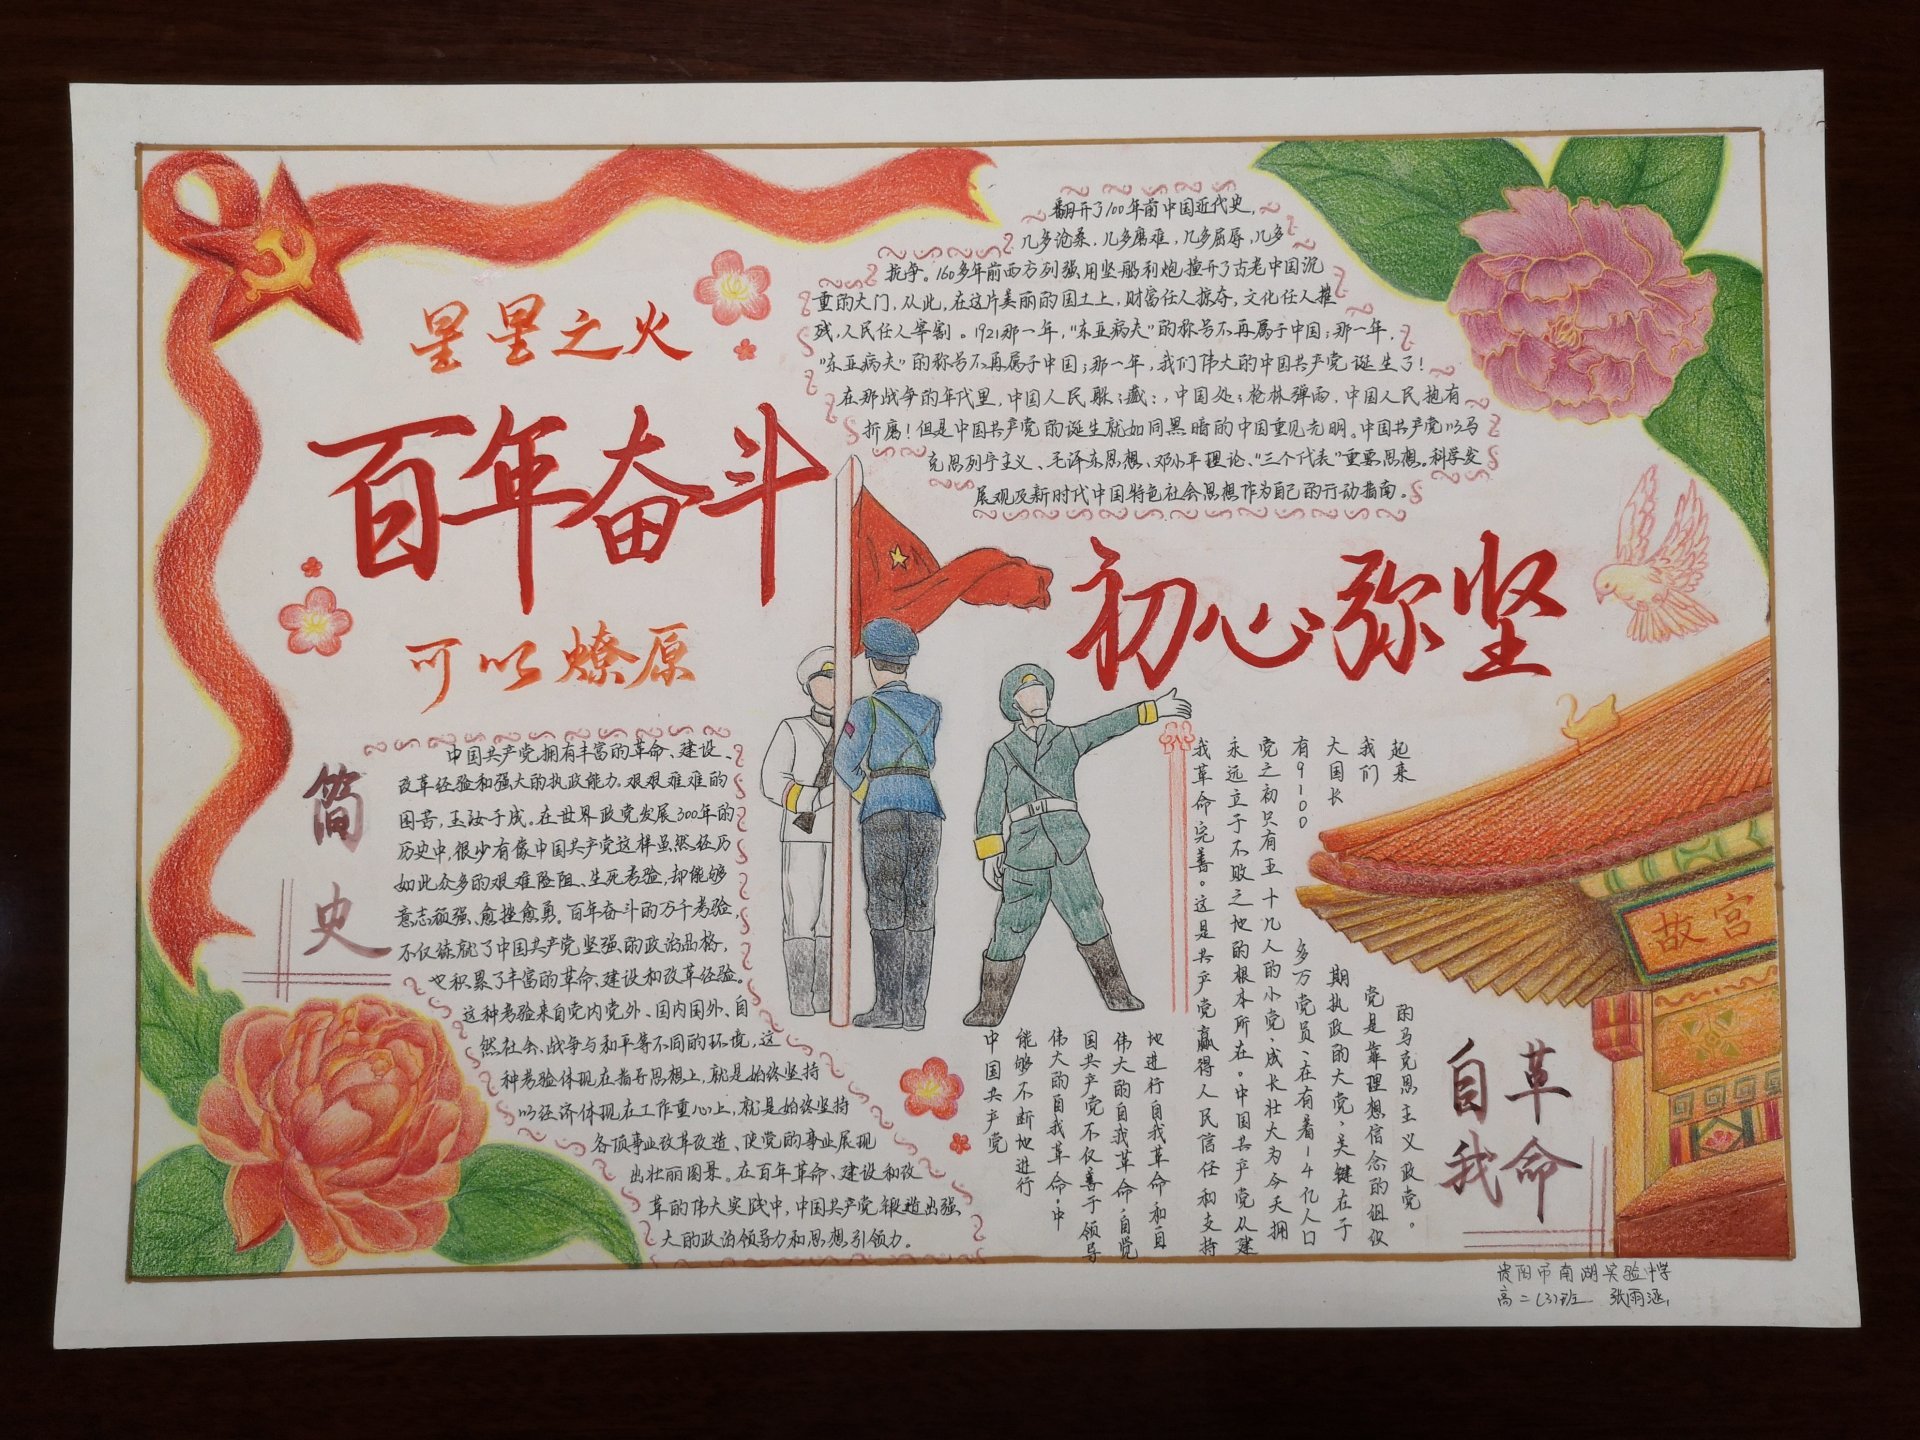 星星之火
百年奋斗
可以燎原
翻开了100年前中国近代史,
几多沧桑,几多磨难,几多屈辱,几多
抗争。160多年前西方列强用坚船利炮撞开了古老中国沉
重的大门,从此,在这片美丽的国土上,财富任人掠夺,文化任人摧
残,人民任人宰割。1921那一年,“东亚病夫”的称号不再属于中国;那一年,
“东亚病夫”的称号不再属于中国;那一年,我们伟大的中国共产党诞生了!
在那战争的年代里,中国人民躲;藏;,中国处;枪林弹雨,中国人民抱有
折磨!但是中国共产党的诞生就如同黑暗的中国重见光明。中国共产党以马
克思列宁主义、毛泽东思想、邓小平理论、“三个代表”重要思想。科学发
展观及新时代中国特色社会思想作为自己的行动指南。
初心弥坚
简史
中国共产党拥有丰富的革命、建设、
改革经验和强大的执政能力。艰艰难难的
困苦,玉汝于成。在世界政党发展300年的
历史中,很少有像中国共产党这样虽然经历
如此众多的艰难险阻、生死考验,却能够
意志顽强、愈挫愈勇。百年奋斗的万千考验,
不仅练就了中国共产党坚强的政治品格,
也积累了丰富的革命、建设和改革经验。
这种考验来自党内党外、国内国外、自
然社会、战争与和平等不同的环境,这
种考验体现在指导思想上,就是始终坚持
以经济体现在工作重心上,就是始终坚持
各项事业改革改造、使党的事业展现
出壮丽图景。在百年革命、建设和改
革的伟大实践中,中国共产党锻造出强
大的政治领导力和思想引领力。
故宫
自我
革命
起来的马克思主义政党。
我们党是靠理想信念的组织
大国长期执政的大党,关键在于
有9100多万党员、在有着14亿人口
党之初只有五十几人的小党、成长壮大为今天拥
永远立于不败之地的根本所在。中国共产党从建
我革命完善。这是共产党赢得人民信任和支持
地进行自我革命,和自
伟大的自我革命,自觉
国共产党不仅善于领导
伟大的自我革命,中
能够不断地进行
中国共产党
贵阳市南湖实验中学
高二(3)班 张雨涵